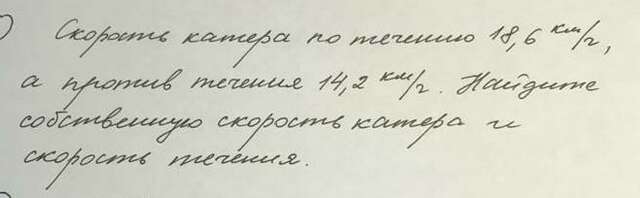 Скорость катера по течению 18,6 км/ч,
а против течения 14,2 км/ч. Найдите
собственную скорость катера и
скорость течения.